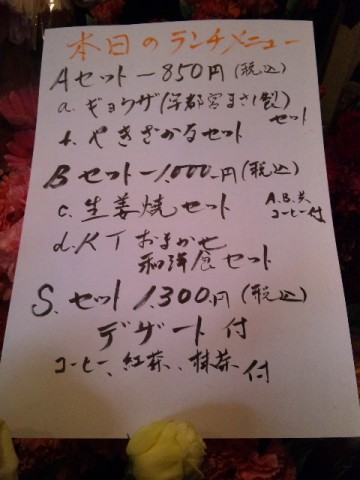 本日のランチメニュー
Aセット－850円(税込)
a. ギョウザ(宇都宮まさし製)セット
b. やきざかなセット
Bセット－1,000円(税込)
c. 生姜焼セット
A.B.共
コーヒー付
d. KTおまかせ
和洋食セット
S.セット 1,300円(税込)
デザート付
コーヒー、紅茶、抹茶付